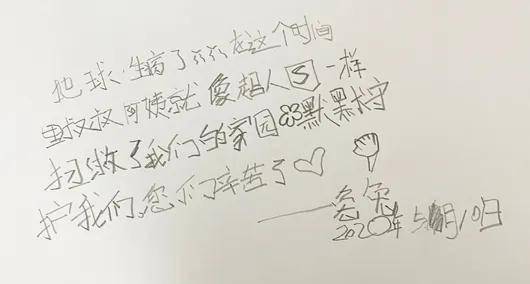 地球生病了 在这个时间
叔叔阿姨就像超人S一样
拯救了我们的家园默默守
护我们,您们辛苦了
——兔兔
2020年5月10日